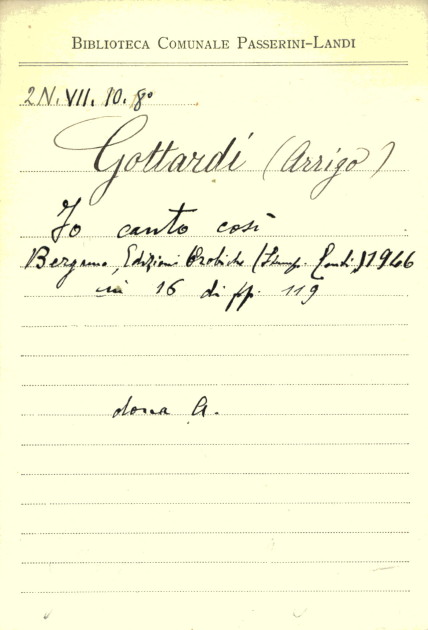 BIBLIOTECA COMUNALE PASSERINI-LANDI
2N. VII. 10. 8º
Gottardi (Arrigo)
Io canto così
Bergamo, Edizioni Orobiche (Stamp. Conti) 1946
in 16 di pp. 119
dona A.